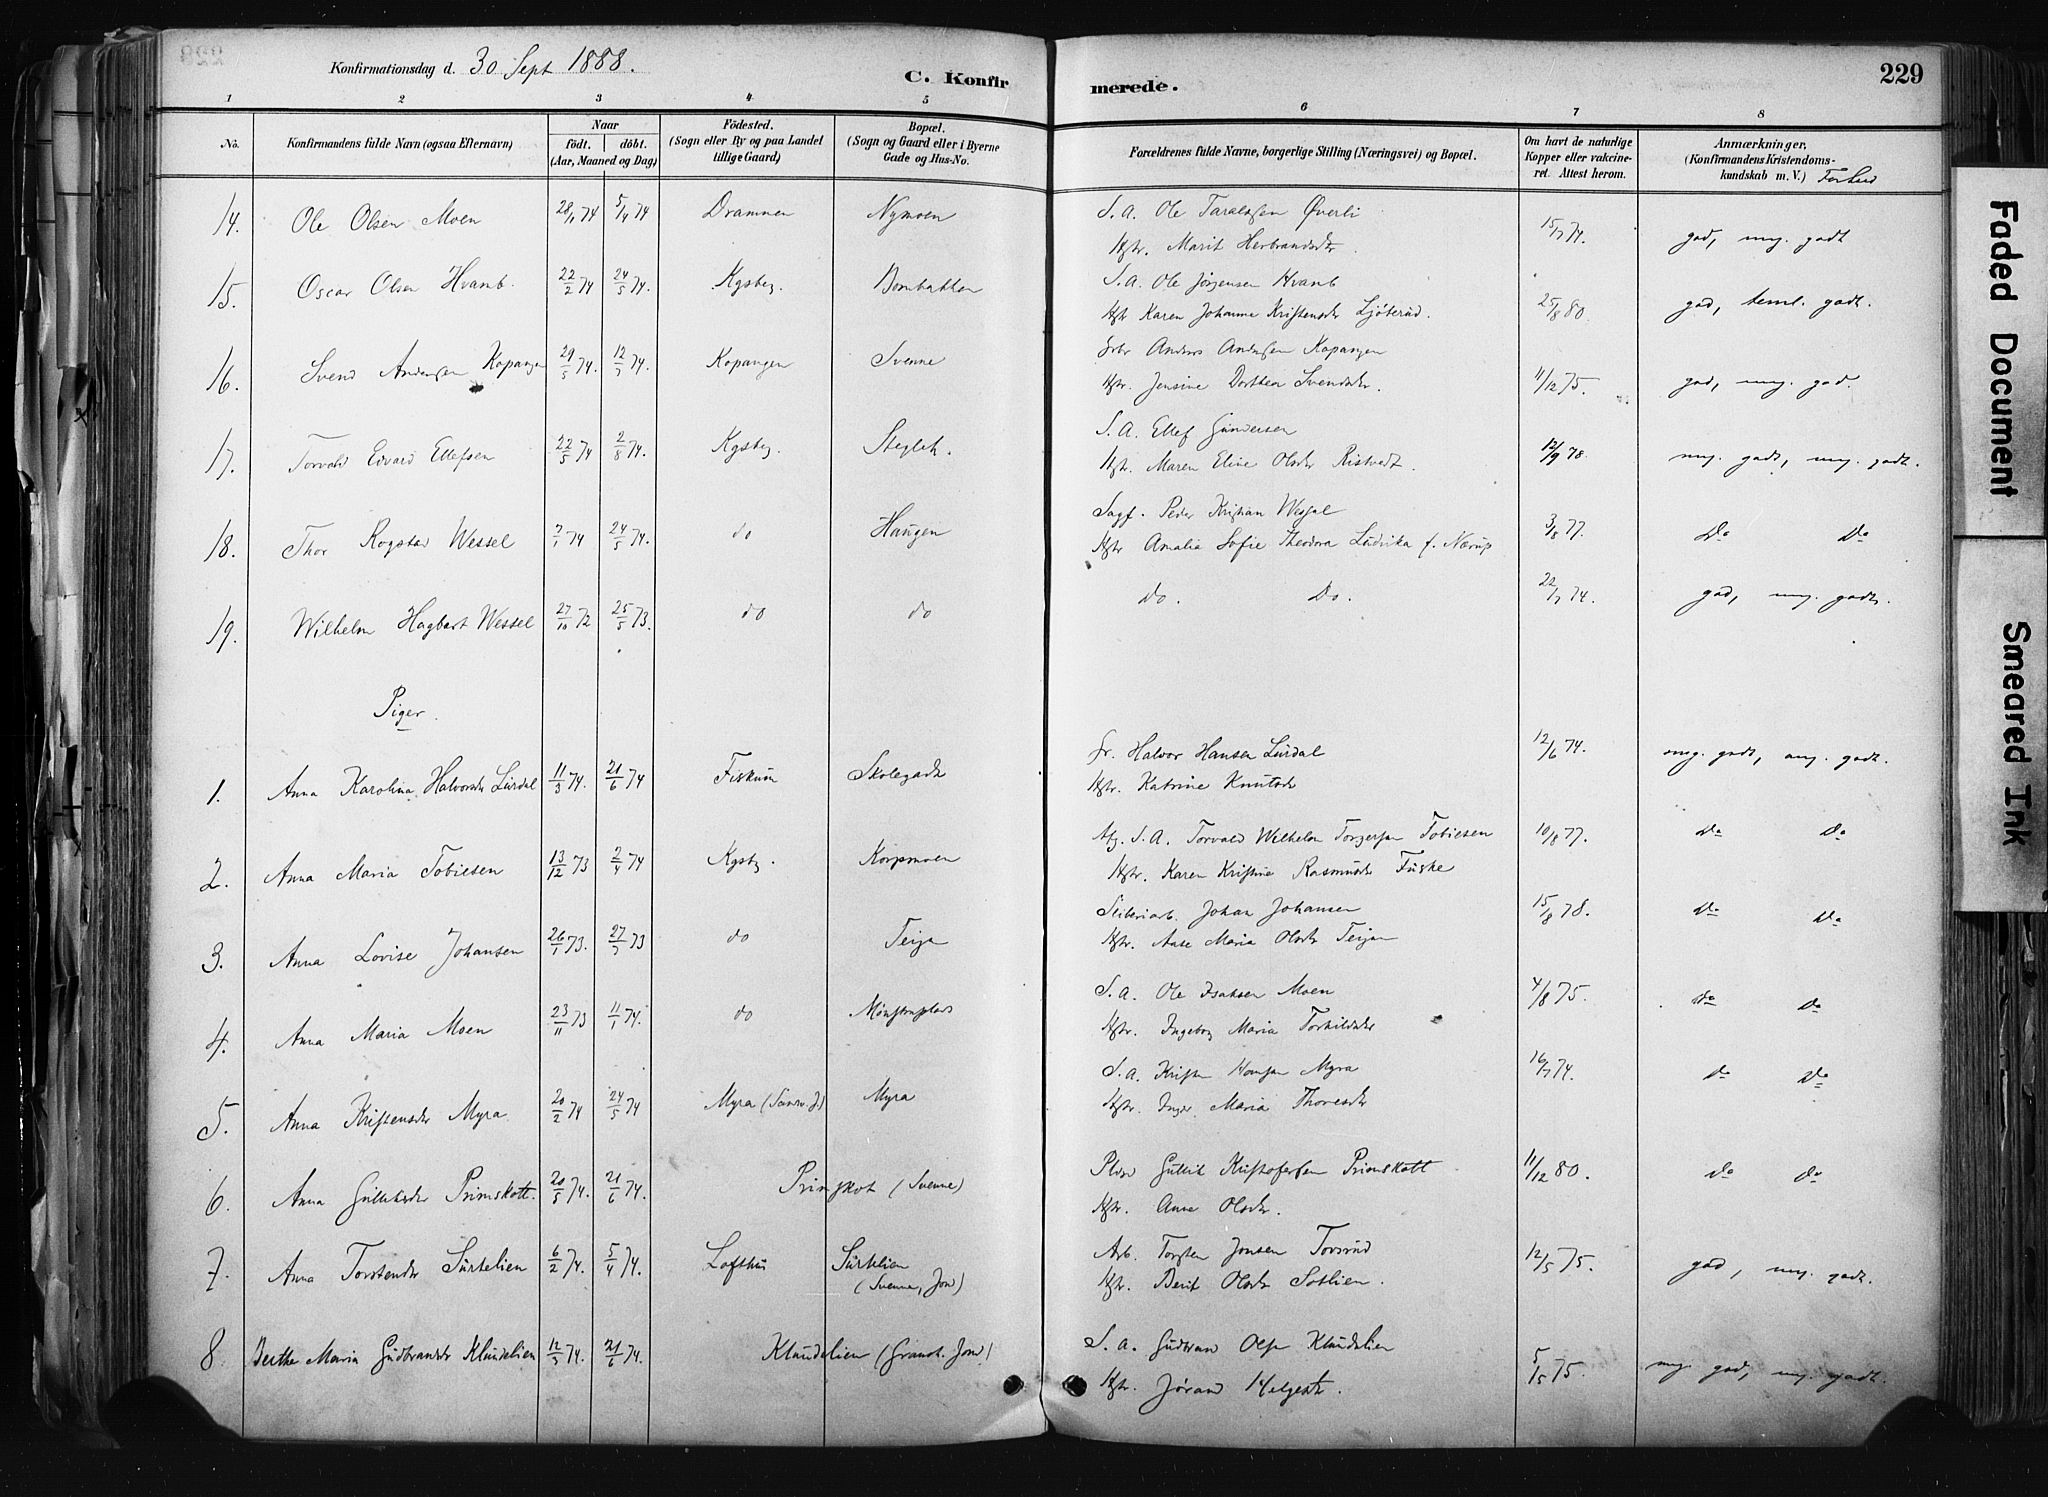 229
Konfirmationsdag d. 30 Sept 1888.
C. Konfirmerede.
1 2 3 4 5 6 7 8
No.
Konfirmandens fulde Navn (ogsaa Efternavn)
Naar
födt. döbt.
(Aar, Maaned og Dag)
Födested.
(Sogn eller By og paa Landet tillige Gaard)
Bopæl.
(Sogn og Gaard eller i Byerne Gade og Hus-No.
Forældrenes fulde Navne, borgerlige Stilling (Næringsvei) og Bopæl.
Om havt de naturlige Kopper eller vakcineret. Attest herom.
Anmærkninger.
(Konfirmandens Kristendomskundskab m. V.) Forhold
14. Ole Olsen Moen 28/1 74 5/4 74 Drammen Nymoen S. A. Ole Taralsen Øverli 15/7 74. god, meg. godt
Hstr. Marit Herbrandsdtr.
15. Oscar Olsen Hvamb. 22/2 74 24/5 74. Kgsbg. Bombakken S. A. Ole Jörgensen Hvamb 25/8 80. god, teml. godt.
Hstr Karen Johanne Kristensdtr Ljöterud.
16. Svend Andersen Kopangen 29/5 74. 12/7 74. Kopangen Svenne Gbr Anders Andersen Kopangen 11/12 75. god, meg. god.
Hstr. Jensine Dorthea Svendsdtr.
17. Torvald Edvard Ellefsen 22/5 74 2/8 74. Kgsbg. S. A. Ellef Gundersen 12/9 78. meg. godt, meg. godt.
Hstr. Maren Eline Olsdtr Ristvedt.
18. Thor Rogstad Wessel 7/1 74 24/5 74. do Haugen Sagf. Peder Kristian Wessel 3/8 77. Do Do
Hstr Amalia Sofie Theodora Ludvika f. Nærup
19. Wilhelm Hagbart Wessel 27/10 72 25/5 73. do do do. Do. 22/7 74. god, meg. godt.
Piger.
1. Anna Karolina Halvorsdtr Lurdal 11/3 74. 21/6 74 Fiskum Skolegade Gr. Halvor Hansen Lurdal 12/6 74. meg. godt, meg. godt.
Hstr. Katrine Knutsdtr
2. Anna Maria Tobiesen 13/12 73 2/4 74 Kgsbg. Korpmoen S. A. Torvald Wilhelm Torgersen Tobiesen 10/8 77. Do Do
Hstr. Karen Kristine Rasmusdtr Fuske
3. Anna Lovise Johansen 26/1 73. 27/7 73 do Teijen Johan Johansen 15/8 78. Do Do
Hstr. Aase Maria Olsdtr Teijen
4. Anna Maria Moen 23/11 73 11/1 74. do S. A. Ole Isaksen Moen 4/8 75. Do Do
Hstr. Ingeborg Maria Torkildsdtr
5. Anna Kristensdtr Myra 20/2 74 24/5 74 Myra (Sansv. J) Myra S. A. Kristen Hansen Myra 16/7 74. Do Do
Hstr. Inger Maria Thoresdtr
6. Anna Gulliksdtr Primskott. 20/5 74. 21/6 74. Primskot (Svenne) Gullik Kristofersen Primskott 11/12 80. Do Do
Hstr. Anne Olsdtr.
7. Anna Torstensdtr Sürtelien 6/2 74. 5/4 74. Lofthus Sürtelien Arb. Torsten Jonsen Torsrud 12/5 75. god, meg. godt.
(Svenne, Jon) Hstr. Berit Olsdtr Sotlien.
8. Berthe Maria Gudbrandsdtr Klaudelien 12/3 74. 21/6 74. Klaudelien (Granst. Jon) S. A. Gudbrand Olsen Klaudelien 5/5 75. meg. god, meg. godt.
Hstr. Jörand Helgesdtr.
Faded Document
Smeared Ink